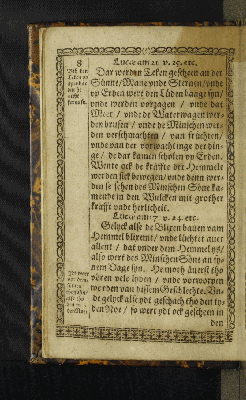 8
Lucæ am 21. v. 25. etc.
Dar werden Teken gescheen an der
Sünne / Mane vnde Sternen / vnde
vp Erden wert den Lüden bange syn /
vnde werden vorzagen / vnde dat
Meer / vnde de Waterwagen wer-
den brusen / vnde de Minschen wer-
den vorschmachten / van früchten /
vnde van der vorwachtinge der din-
ge / de dar kamen scholen vp Erden.
Wente ock de kräffte der Hemmele
werden sick bewegen / vnde denn wer-
den se sehen des Minschen Söne ka-
mende in den Wulcken mit grother
krafft vnde herlicheit.
Lucæ am 17. v. 24. etc.
Gelyck alse de Blixen bauen vam
Hemmel blixemt / vnde lüchtet auer
allent / dat vnder dem Hemmel ys /
also wert des Minschen Söne an sy-
nem Dage syn. Hennoch auerst tho
vören vele lyden / vnde vorworpen
werden van dissem Geschlechte. Vn-
de gelyck alse ydt geschach tho den ty-
den Noe / so wert ydt ock gescheen in
den